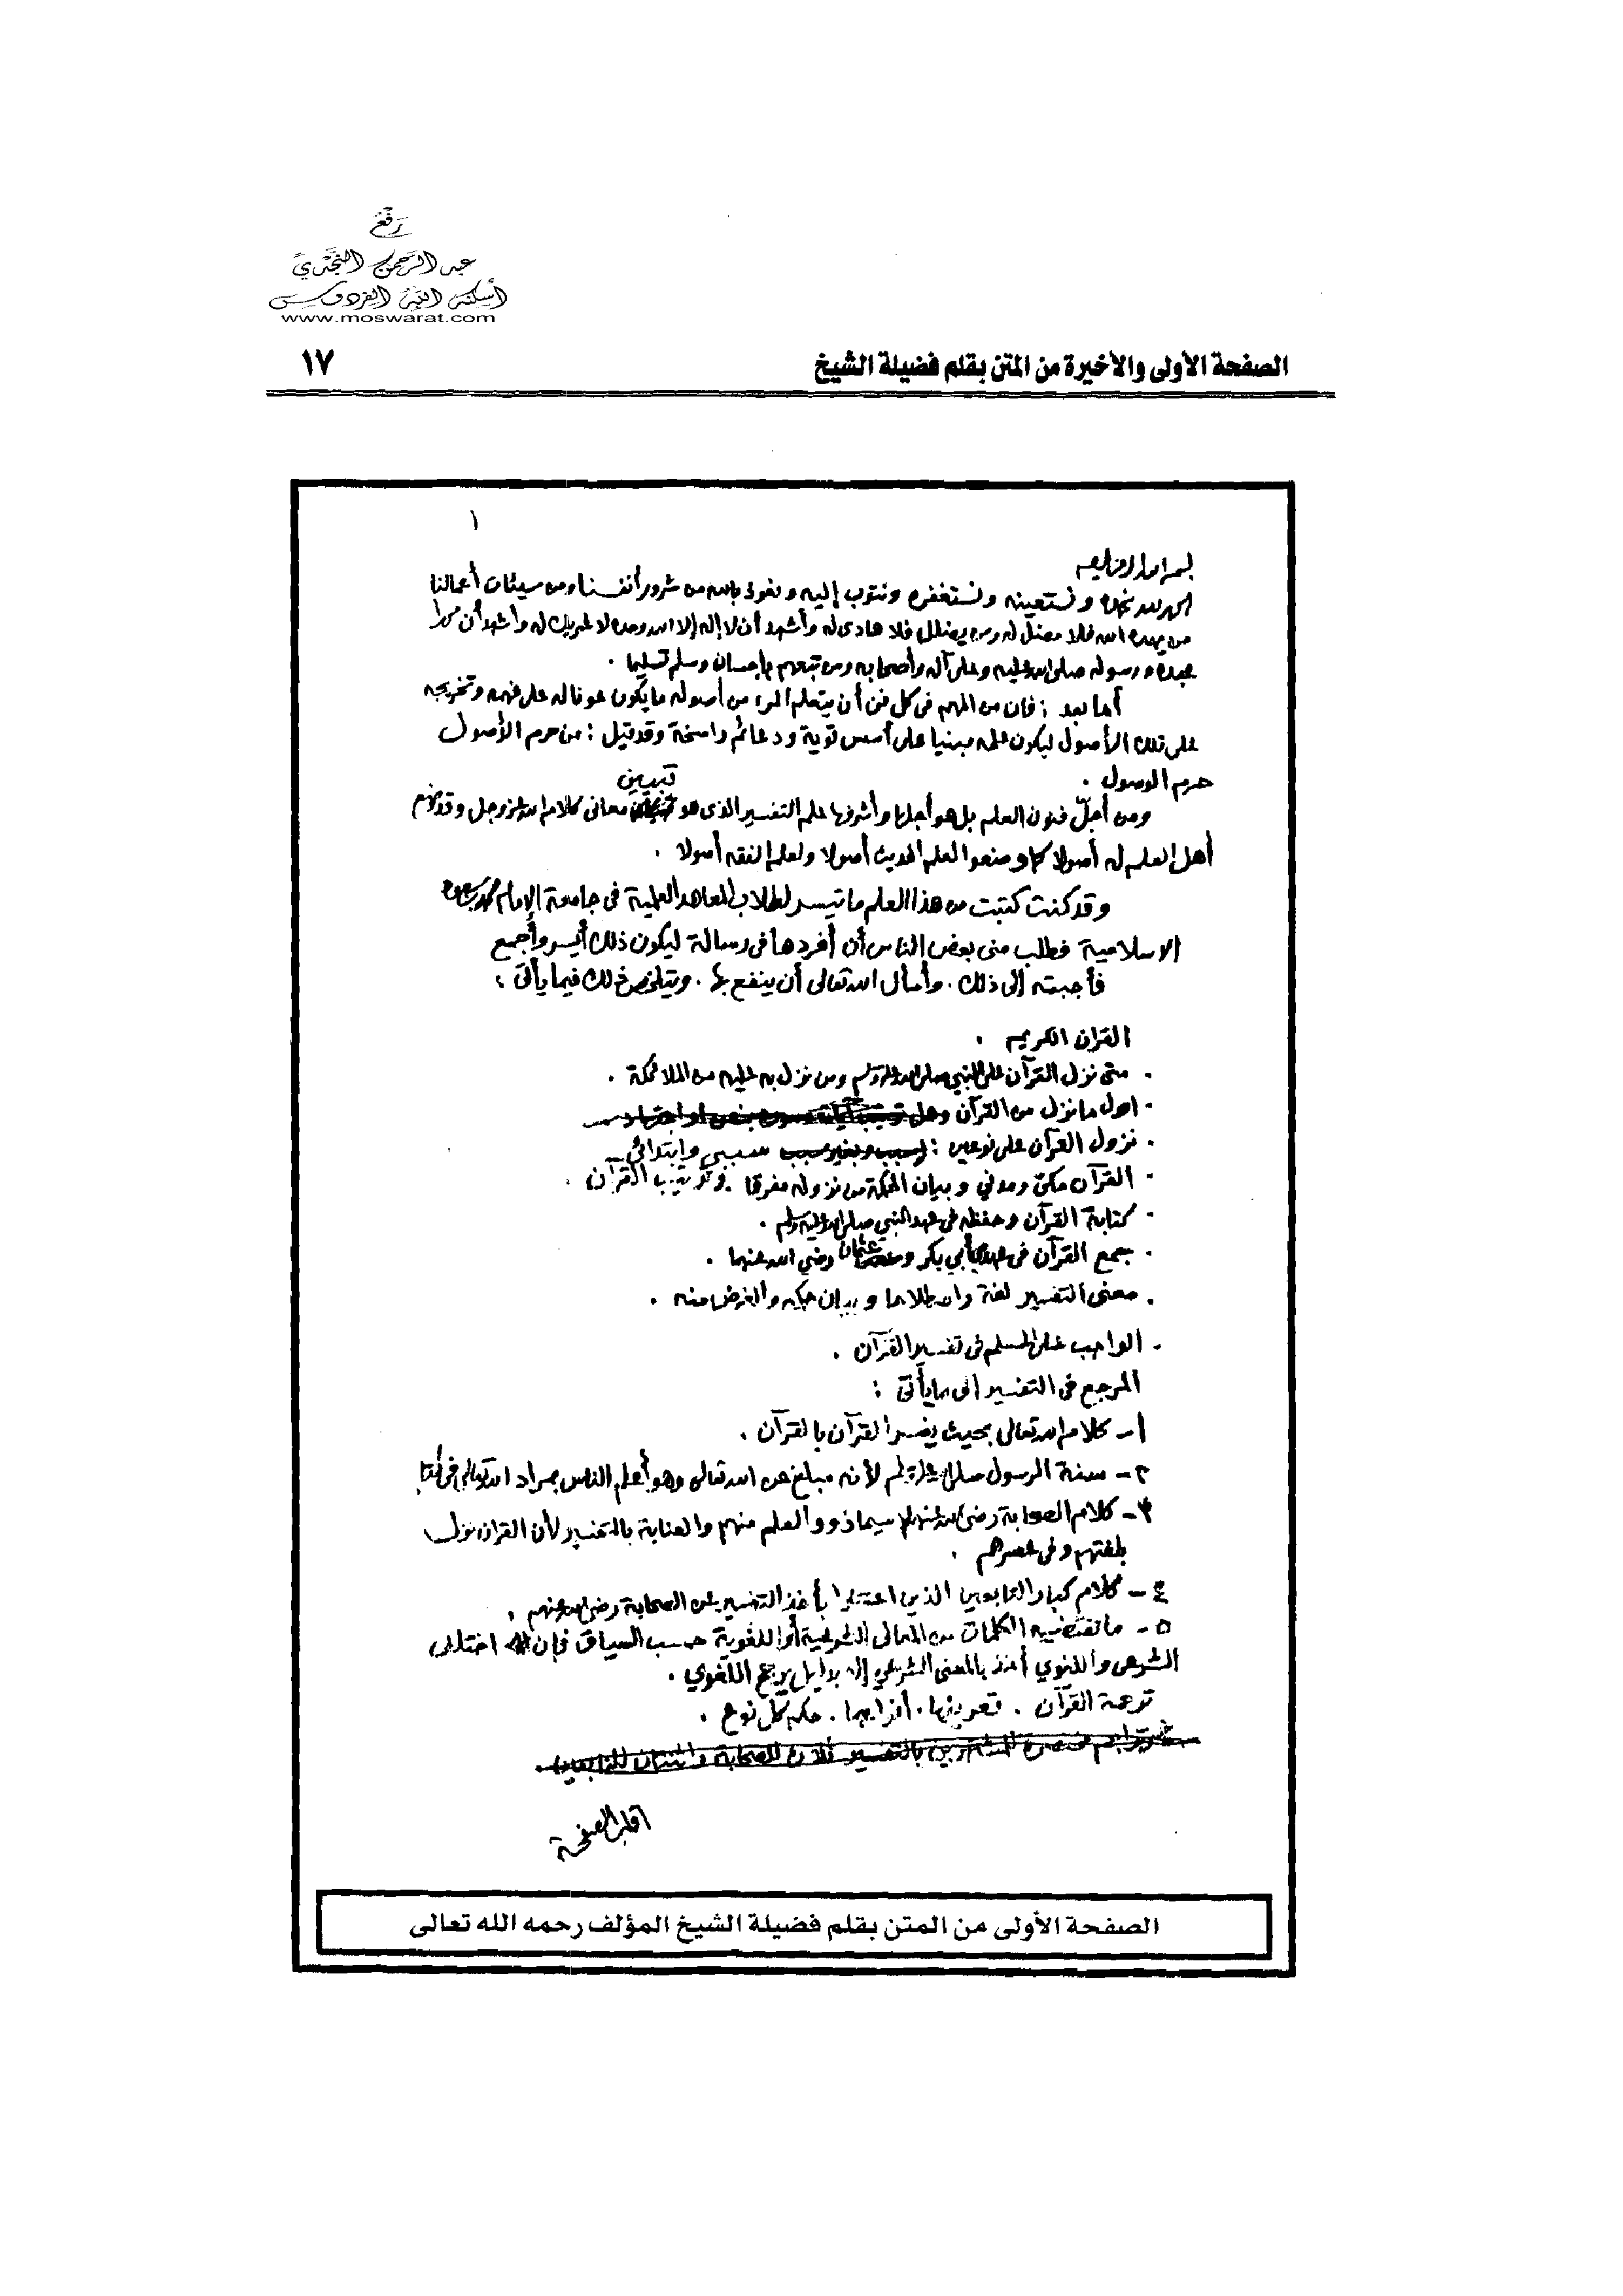 رفع
عبد الرحمن النجدي
أسكنه الله الفردوس
www.moswarat.com
الصفحة الأولى والأخيرة من المتن بقلم فضيلة الشيخ
١٧
١
بسم الله الرحمن الرحيم
الحمد لله نحمده ونستعينه ونستغفره ونتوب إليه ونعوذ بالله من شرور أنفسنا ومن سيئات أعمالنا
من يهده الله فلا مضل له ومن يضلل فلا هادي له وأشهد أن لا إله إلا الله وحده لا شريك له وأشهد أن محمدا
عبده ورسوله صلى الله عليه وعلى آله وأصحابه ومن تبعهم بإحسان وسلم تسليما .
أما بعد : فإن من المهم في كل فن أن يتعلم المرء من أصوله ما يكون عونا له على فهمه وتخريجه
على تلك الأصول ليكون علمه مبنيا على أسس قوية ودعائم راسخة وقد قيل : من حرم الأصول
حرم الوصول .
ومن أجلّ فنون العلم بل هو أجلها وأشرفها علم التفسير الذى هو تبيين معانى كلام الله عز وجل وقد وضع
أهل العلم له أصولا كما وضعوا لعلم الحديث أصولا ولعلم الفقه أصولا .
وقد كنت كتبت من هذا العلم ما تيسر لطلاب المعاهد العلمية فى جامعة الإمام محمد بن سعود
الاسلامية فطلب منى بعض الناس أن أفردها فى رسالة ليكون ذلك أيسر وأجمع
فأجبته إلى ذلك . وأسأل الله تعالى أن ينفع بها . ويتلخص ذلك فيما يأتى :
القرآن الكريم .
. متى نزل القرآن على النبي صلى الله عليه وسلم ومن نزل به عليه من الملائكة .
. اول ما نزل من القرآن
. نزول القرآن على نوعين : سببي وابتدائي
. القرآن مكي ومدني وبيان الحكمة من نزوله مفرقا . وترتيب القرآن .
. كتابة القرآن وحفظه في عهد النبي صلى الله عليه وسلم .
. جمع القرآن في عهد أبي بكر وعثمان رضي الله عنهما .
. معنى التفسير لغة واصطلاحا وبيان حكمه والغرض منه .
. الواجب على المسلم في تفسير القرآن .
المرجع فى التفسير الى ما يأتى :
١- كلام الله تعالى بحيث يفسر القرآن بالقرآن .
٢- سنة الرسول صلى الله عليه وسلم لأنه مبلغ عن الله تعالى وهو أعلم الناس بمراد الله تعالى في كتابه
٣- كلام الصحابة رضي الله عنهم لا سيما ذوو العلم منهم والعناية بالتفسير لأن القرآن نزل
بلغتهم وفى عصرهم .
٤- كلام كبار التابعين الذين اعتنوا بأخذ التفسير عن الصحابة رضي الله عنهم .
٥- ما تقتضيه الكلمات من المعاني الشرعية أو اللغوية حسب السياق فإن اختلف
الشرعي واللغوي أخذ بالمعنى الشرعي إلا بدليل يرجح اللغوي .
ترجمة القرآن . تعريفها . أنواعها . حكم كل نوع .
اقلب الصفحة
الصفحة الأولى من المتن بقلم فضيلة الشيخ المؤلف رحمه الله تعالى